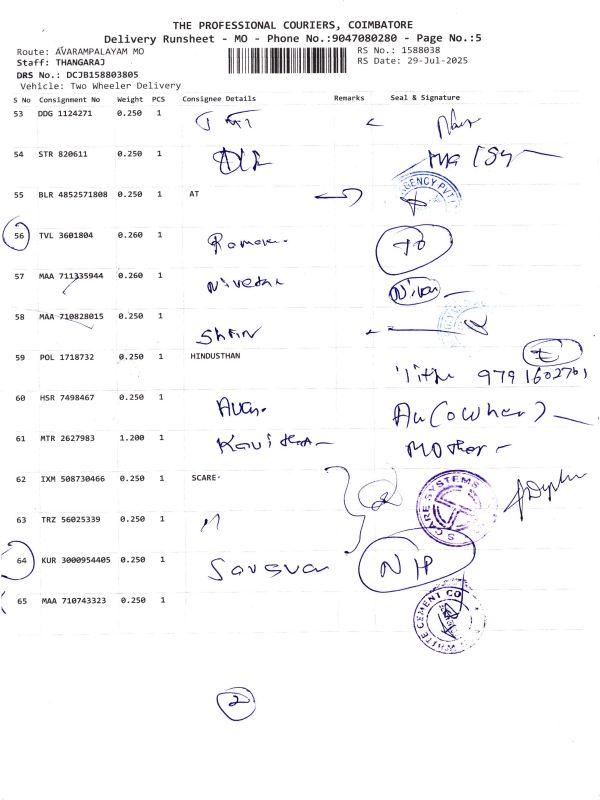 THE PROFESSIONAL COURIERS, COIMBATORE
Delivery Runsheet - MO - Phone No.:9047080280 - Page No.:5
Route: AVARAMPALAYAM MO RS No.: 1588038
Staff: THANGARAJ RS Date: 29-Jul-2025
DRS No.: DCJB158803805
Vehicle: Two Wheeler Delivery
S No Consignment No Weight PCS Consignee Details Remarks Seal & Signature
53 DDG 1124271 0.250 1
54 STR 820611 0.250 1
55 BLR 4852571808 0.250 1 AT
56 TVL 3601804 0.260 1
57 MAA 711335944 0.260 1 Nivedha
58 MAA 710828015 0.250 1
59 POL 1718732 0.250 1 HINDUSTHAN
9791602701
60 HSR 7498467 0.250 1 (Owner)
61 MTR 2627983 1.200 1 Kavitha Mother
62 IXM 508730466 0.250 1 SCARE SCARE SYSTEMS
63 TRZ 56025339 0.250 1
64 KUR 3000954405 0.250 1 Saravan NH
65 MAA 710743323 0.250 1 WHITE CEMENT CO
2